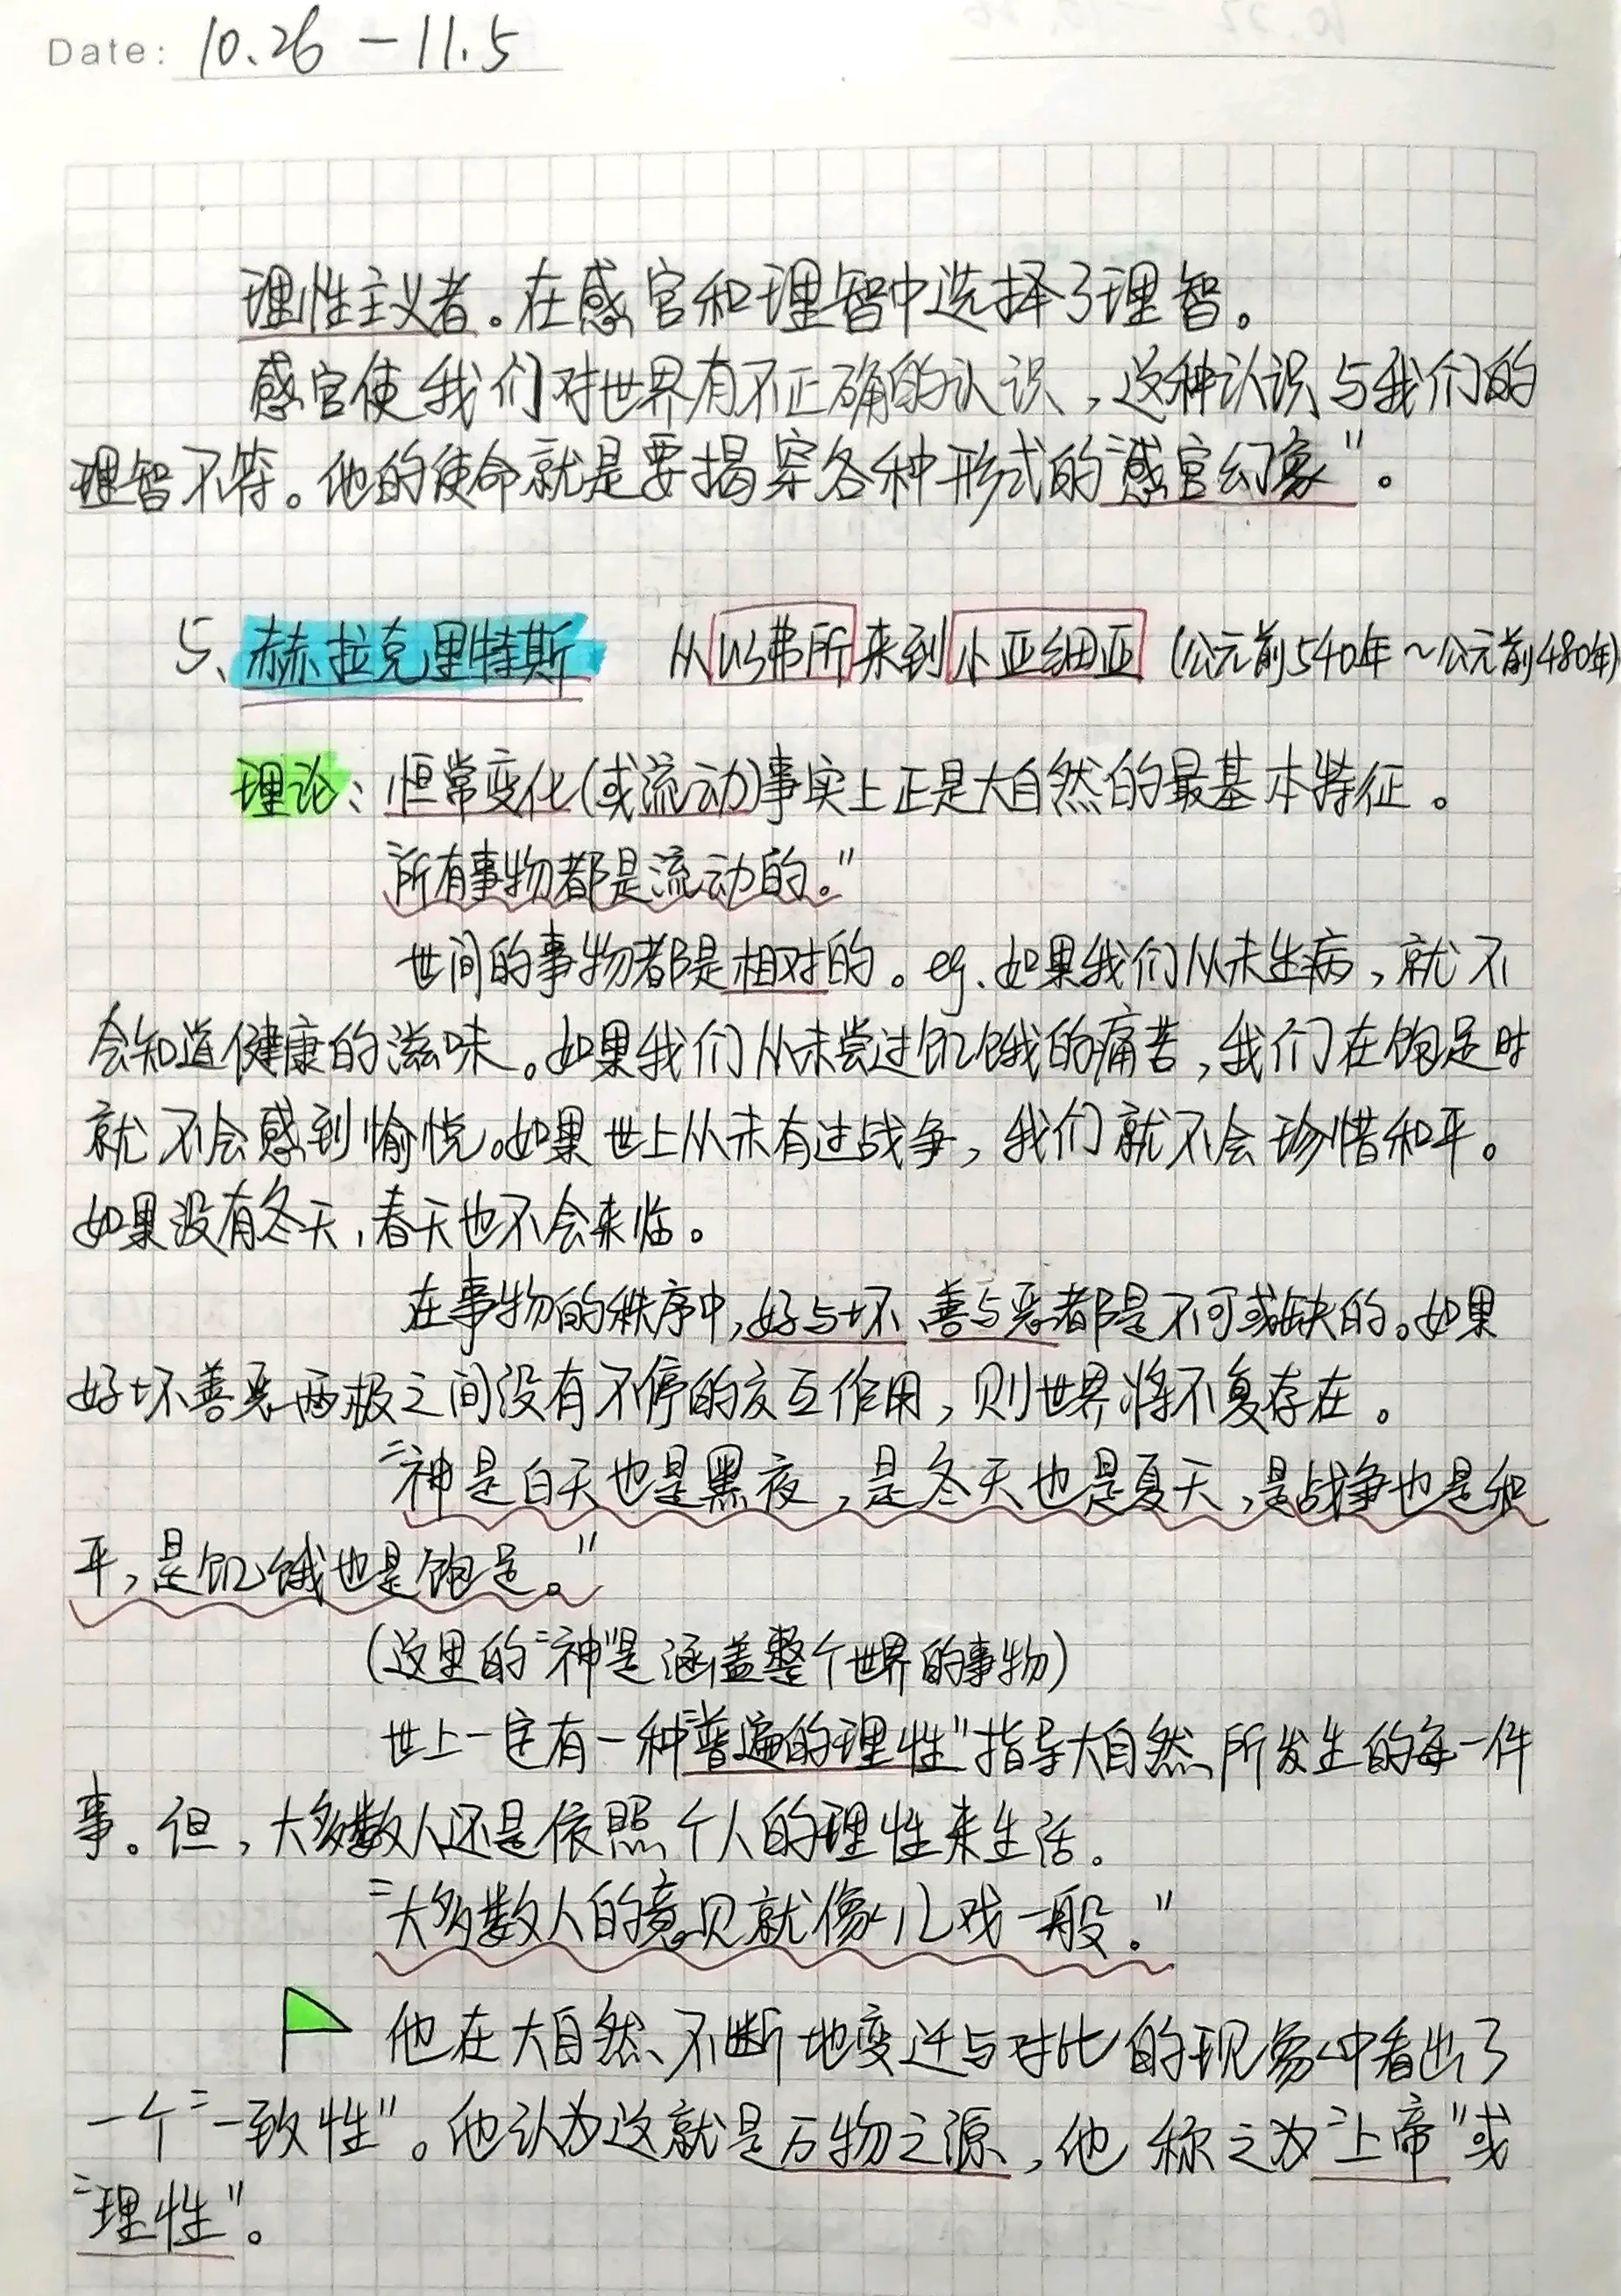 Date: 10.26 — 11.5
理性主义者。在感官和理智中选择了理智。
感官使我们对世界有不正确的认识,这种认识与我们的
理智不符。他的使命就是要揭穿各种形式的“感官幻象”。
5、赫拉克里特斯 从以弗所来到小亚细亚 (公元前540年~公元前480年)
理论:恒常变化(或流动)事实上正是大自然的最基本特征。
“所有事物都是流动的。”
世间的事物都是相对的。eg.如果我们从未生病,就不
会知道健康的滋味。如果我们从未尝过饥饿的痛苦,我们在饱足时
就不会感到愉悦。如果世上从未有过战争,我们就不会珍惜和平。
如果没有冬天,春天也不会来临。
在事物的秩序中,好与坏、善与恶都是不可或缺的。如果
好坏善恶两极之间没有不停的交互作用,则世界将不复存在。
“神是白天也是黑夜,是冬天也是夏天,是战争也是和
平,是饥饿也是饱足。”
(这里的“神”是涵盖整个世界的事物)
世上一定有一种“普遍的理性”指导大自然所发生的每一件
事。但,大多数人还是依照个人的理性来生活。
“大多数人的意见就像儿戏一般.”
他在大自然不断地变迁与对比的现象中看出了
一个“一致性”。他认为这就是万物之源,他称之为“上帝”或
“理性”。